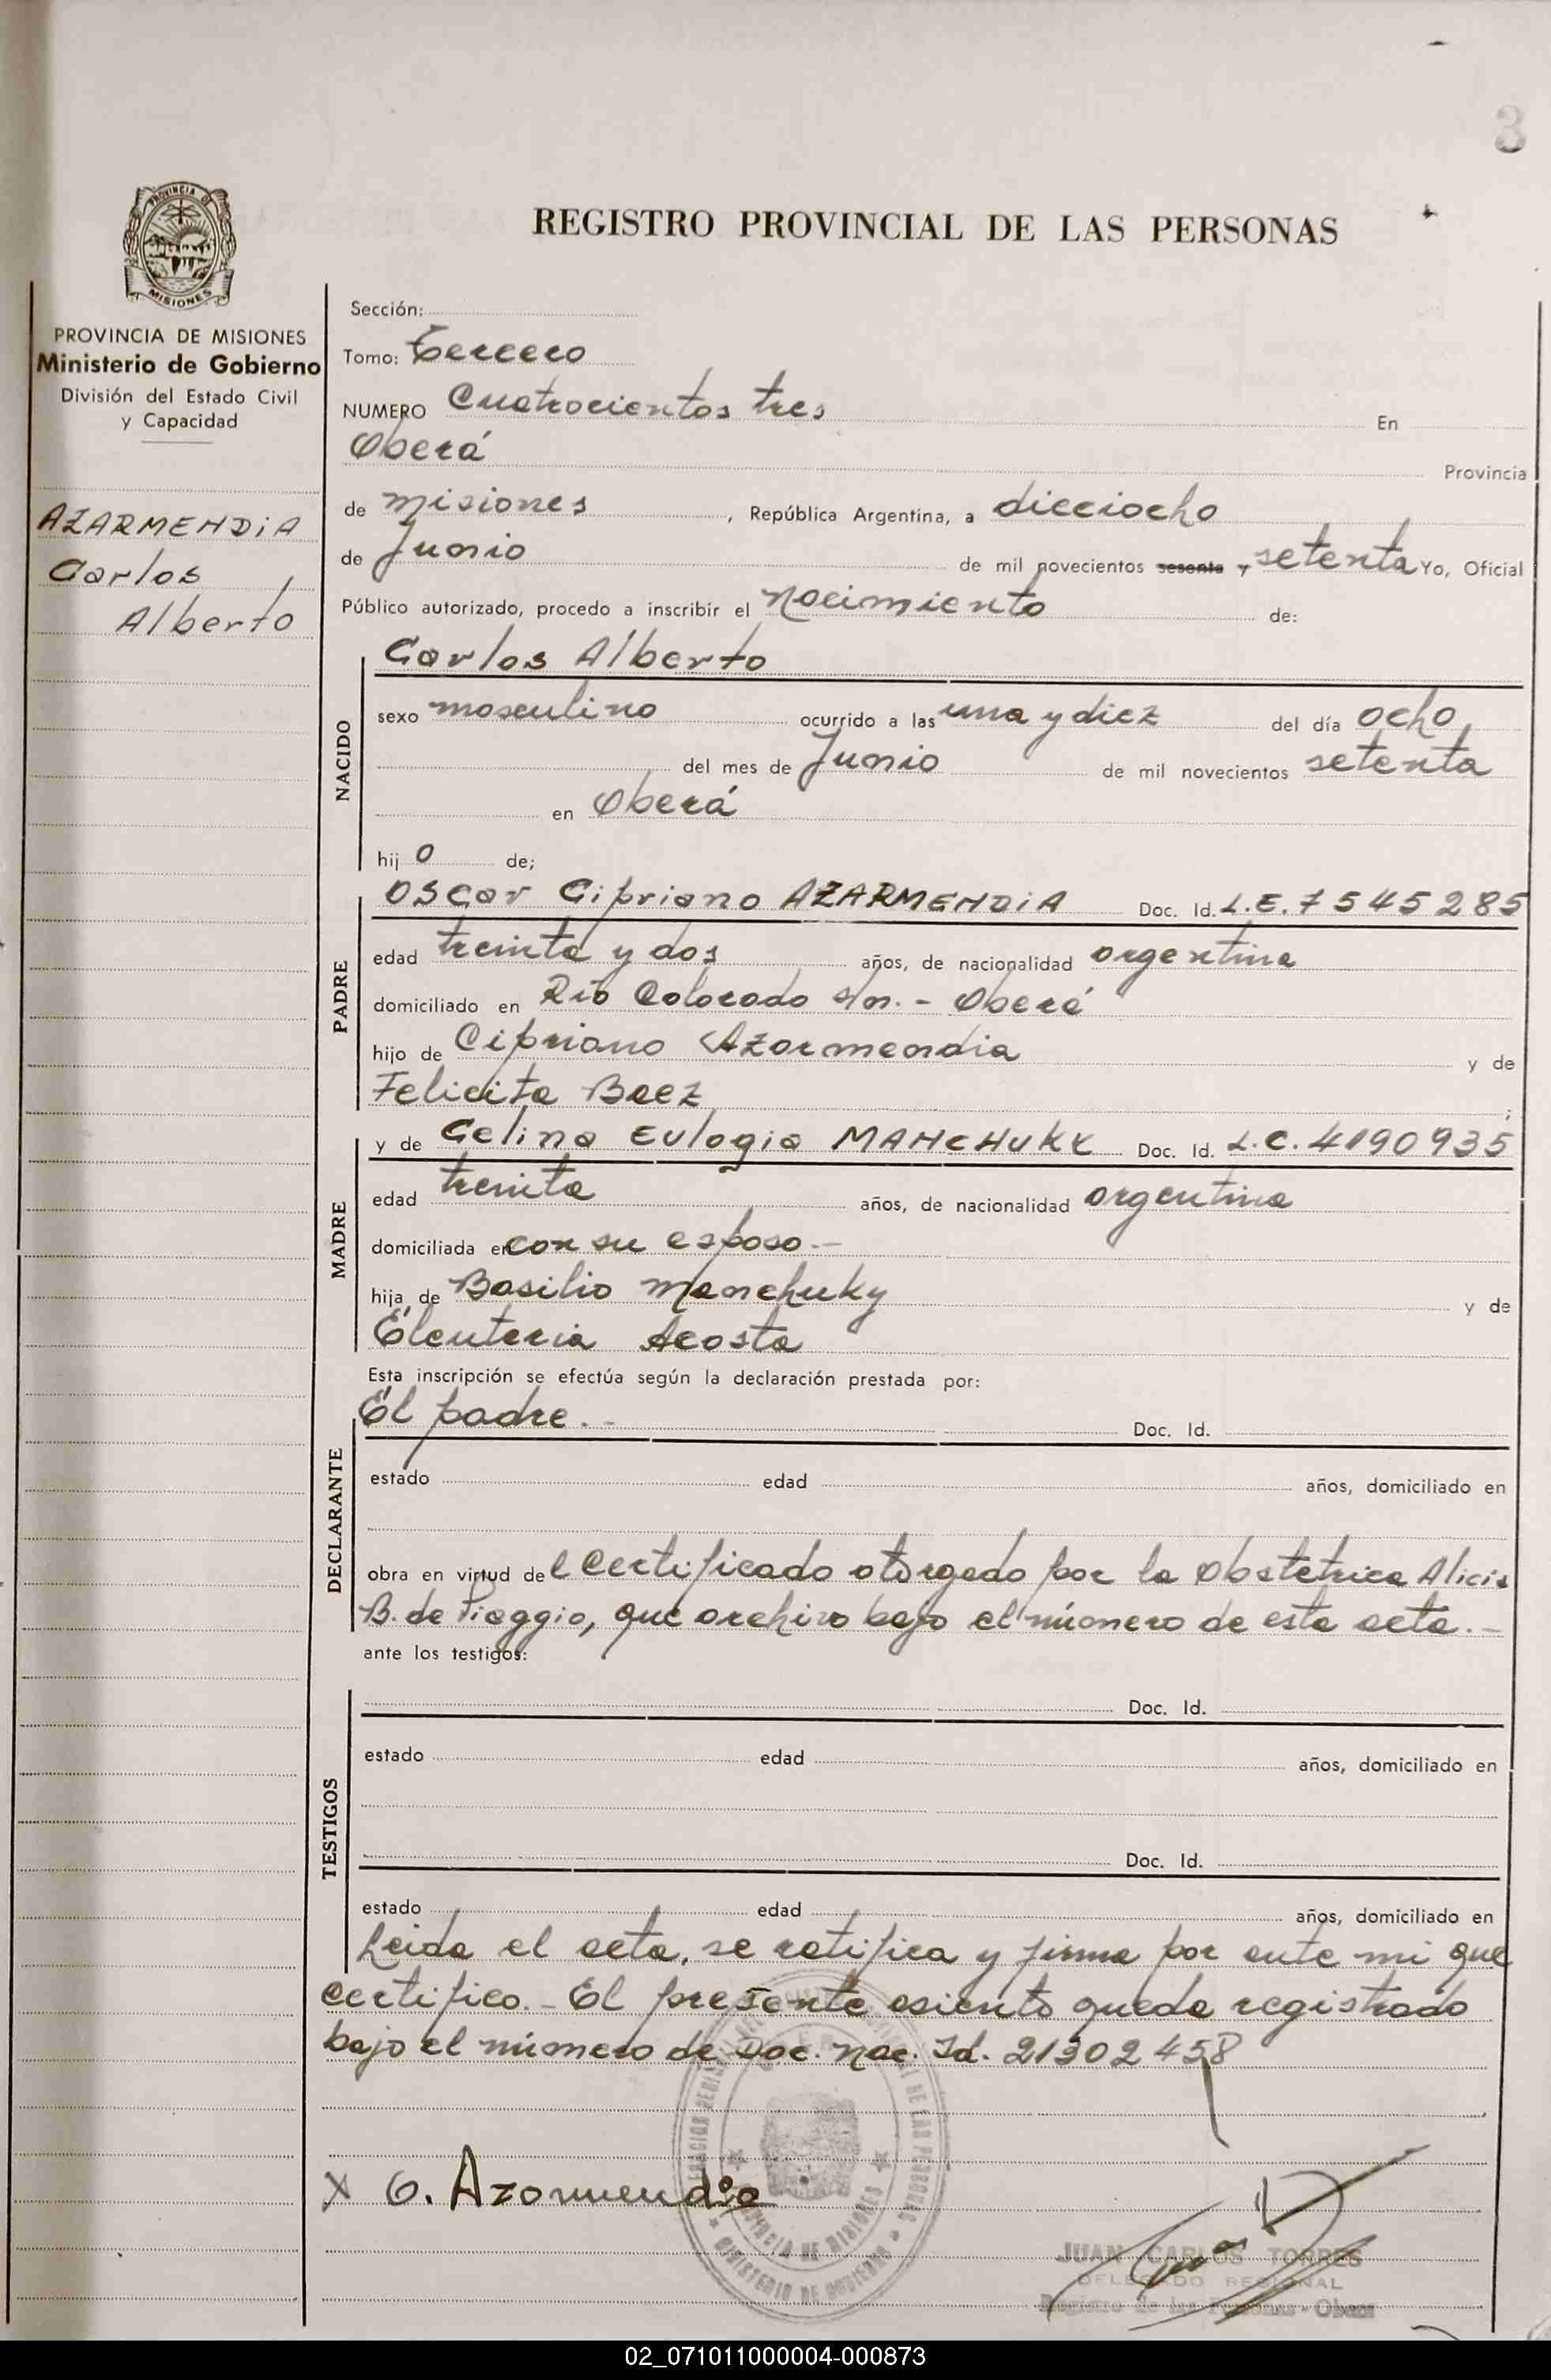 3
PROVINCIA DE
MISIONES
REGISTRO PROVINCIAL DE LAS PERSONAS
PROVINCIA DE MISIONES
Ministerio de Gobierno
División del Estado Civil
y Capacidad
AZARMENDIA
Carlos
Alberto
Sección:
Tomo: Tercero
NUMERO Cuatrocientos tres En
Oberá Provincia
de Misiones, República Argentina, a dieciocho
de Junio de mil novecientos sesenta y setenta Yo, Oficial
Público autorizado, procedo a inscribir el nacimiento de:
NACIDO
Carlos Alberto
sexo masculino ocurrido a las una y diez del día ocho
del mes de Junio de mil novecientos setenta
en Oberá
hijo de;
PADRE
Oscar Cipriano AZARMENDIA Doc. Id. L.E. 7545285
edad treinta y dos años, de nacionalidad argentina
domiciliado en Río Colorado s/n. - Oberá
hijo de Cipriano Azarmendia y de
Felicita Baez ;
MADRE
y de Celina Eulogia MANCHUKY Doc. Id. L.C. 4190935
edad treinta años, de nacionalidad argentina
domiciliada en con su esposo.-
hija de Basilio Manchuky y de
Eleuteria Acosta
Esta inscripción se efectúa según la declaración prestada por:
DECLARANTE
El padre.- Doc. Id.
estado edad años, domiciliado en
obra en virtud del Certificado otorgado por la Obstetrica Alicia
B. de Piaggio, que archivo bajo el número de esta acta.-
ante los testigos:
TESTIGOS
Doc. Id.
estado edad años, domiciliado en
Doc. Id.
estado edad años, domiciliado en
Leida el acta, se ratifica y firma por ante mi que
certifico.- El presente asiento queda registrado
bajo el número de Doc. Nac. Id. 21302458
X O. Azarmendia
PROVINCIA DE MISIONES
MINISTERIO DE GOBIERNO
JUAN CARLOS TORRES
DELEGADO REGIONAL
Registro de las Personas - Oberá
02_071011000004-000873